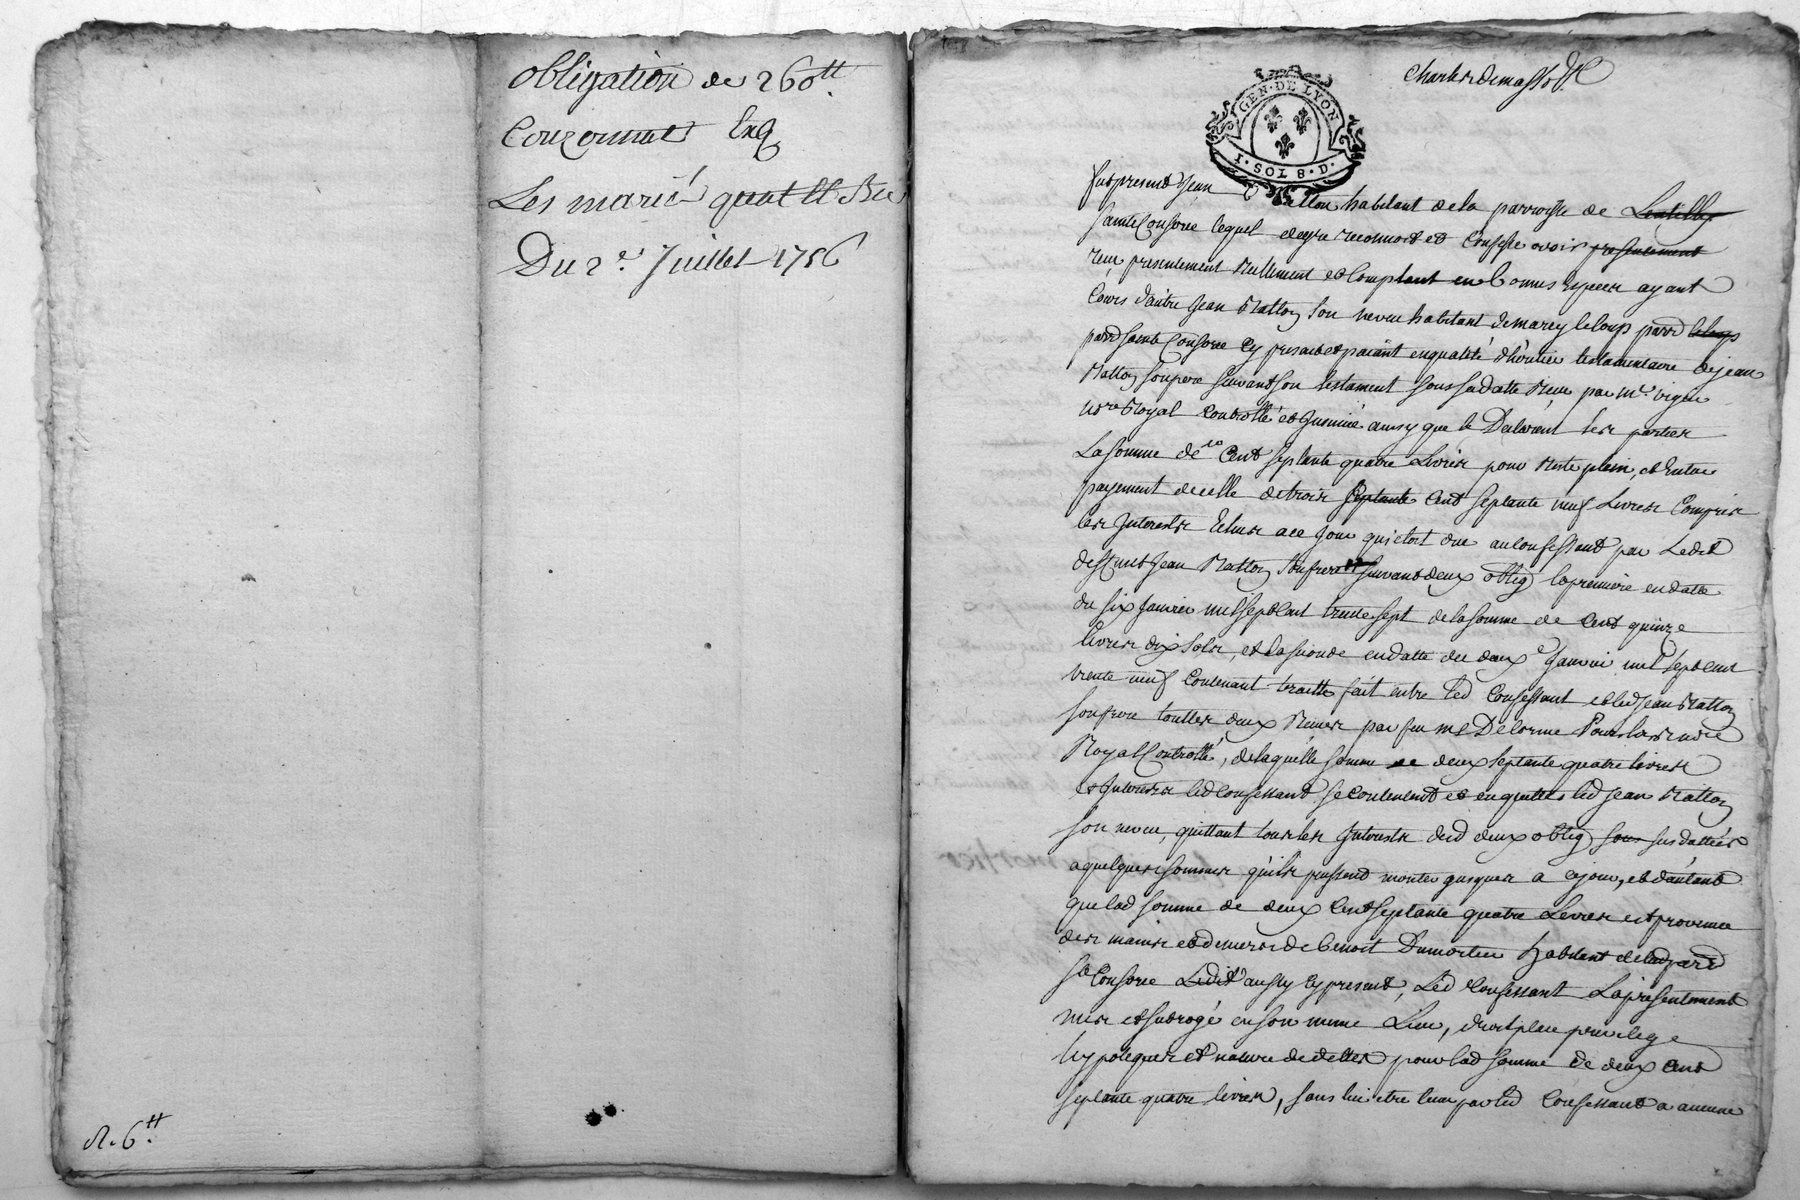 obligation de 260tt
Couzonnat Exq
Les marié
Du 2e. Juillet 1756
R. 6tt
GEN. DE LYON
I. SOL 8. D.
fut present Jean habitant de la parroisse de Lentilly
Sainte Consorce lequel de gré reconnoit et Confesse avoir presentement
receu presentement reellement et comptant en bonnes especes ayant
Cours d'autre Jean Ratton son neveu habitant de marcy le loup parr
parr sainte Consorce cy present et paiant en qualité d'héritier testamentaire de jean
Ratton son pere suivant son testament sous sa datte receu par me.
nore Royal Controllé et Insinué ainsy que le Declarent les parties
La somme de Cent septante quatre Livres pour reste plein, et entier
payement de celle de trois septante Cent septante neuf Livres Compris
les Interests Echus a ce jour qui etoit due au Confessant par Ledit
deffunt Jean Ratton son frere suivant deux oblig la premiere en datte
du six Janvier mil sept Cent trente sept de la somme de Cent quinze
livres dix sols, et la seconde en datte du deux e Janvier mil sept Cent
trente neuf Contenant traitté fait entre led Confessant et led Jean Ratton
son frere touttes deux Receues par feu me Delorme nore
Royal Controllé, de laquelle somme de deux septante quatre livres
et Interests led Confessant se contement et en quitte led Jean Ratton
son neveu, quittant tous les Interests desd deux oblig sous sus dattées
a quelques sommes qu'ils pussent monter jusques a ce jour, et d'autant
que lad somme de deux Cent septante quatre Livres est provenue
des mains et deniers de benoit Dumortier habitant de lad parr
ste Consorce Ledit aussy cy present, Led Confessant La presentement
mis et subrogé en son meme Lieu, droit place privilege
hypoteques et nature de dettes pour lad somme de deux Cent
septante quatre livres, sans lui etre tenu par led Confessant a aucune